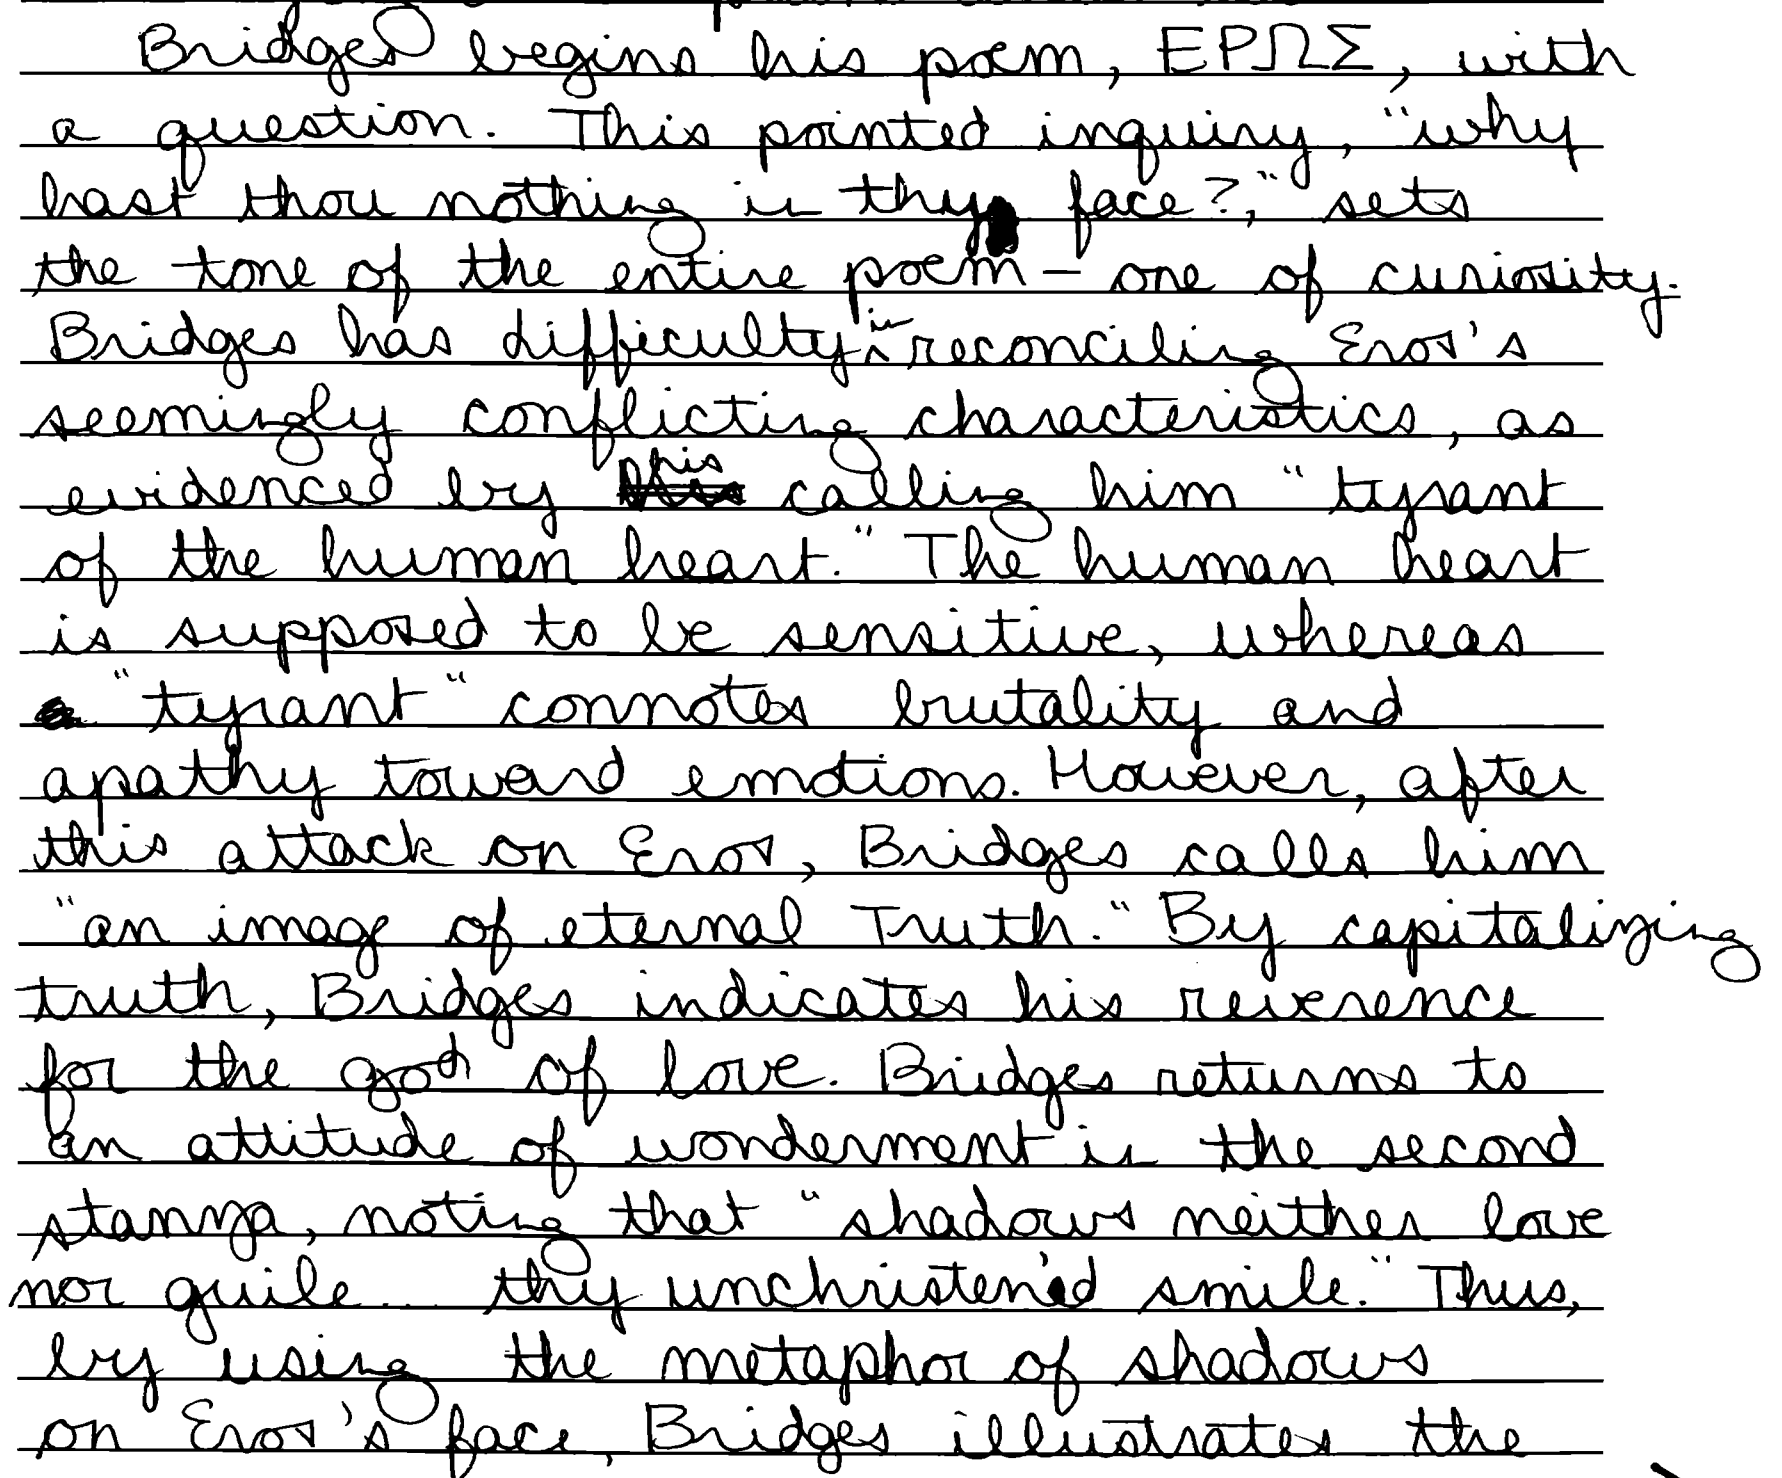 Bridges begins his poem, ΕΡΩΣ, with
a question. This pointed inquiry, "why
hast thou nothing in thy face?," sets
the tone of the entire poem – one of curiosity.
Bridges has difficulty in reconciling Eros's
seemingly conflicting characteristics, as
evidenced by his calling him "tyrant
of the human heart." The human heart
is supposed to be sensitive, whereas
"tyrant" connotes brutality and
apathy toward emotions. However, after
this attack on Eros, Bridges calls him
"an image of eternal Truth." By capitalizing
truth, Bridges indicates his reverence
for the god of love. Bridges returns to
an attitude of wonderment in the second
stanza, noting that "shadows neither love
nor guile... thy unchristen'd smile." Thus,
by using the metaphor of shadows
on Eros's face, Bridges illustrates the